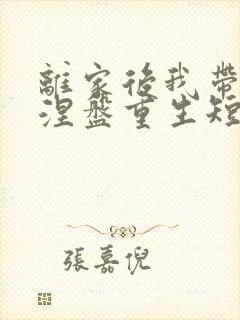 離家後我帶
涅盤重生短
張嘉倪